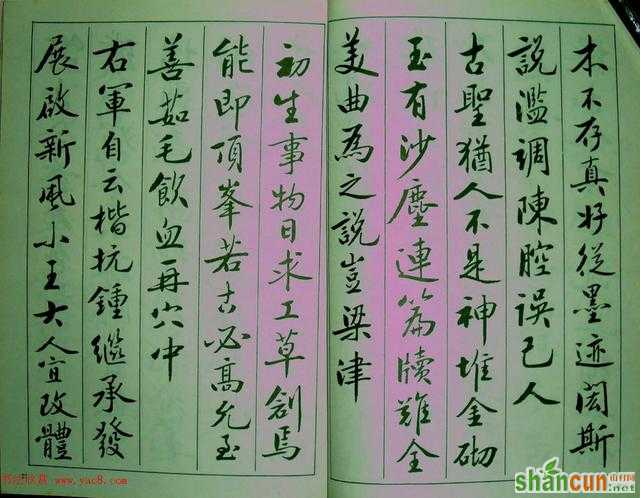 木不存真好從墨迹閎斯
說濫調陳腔誤己人
古聖猶人不是神堆金砌
玉有沙塵連篇牘難全
美曲為之說豈梁津
初生事物日求工草創焉
能即頂峯若古必高允至
善茹毛飲血再穴中
右軍自云楷抗鍾繼承發
展啟新風小王大人宜改體
书法欣赏 www.yac8.com
shancun
.net